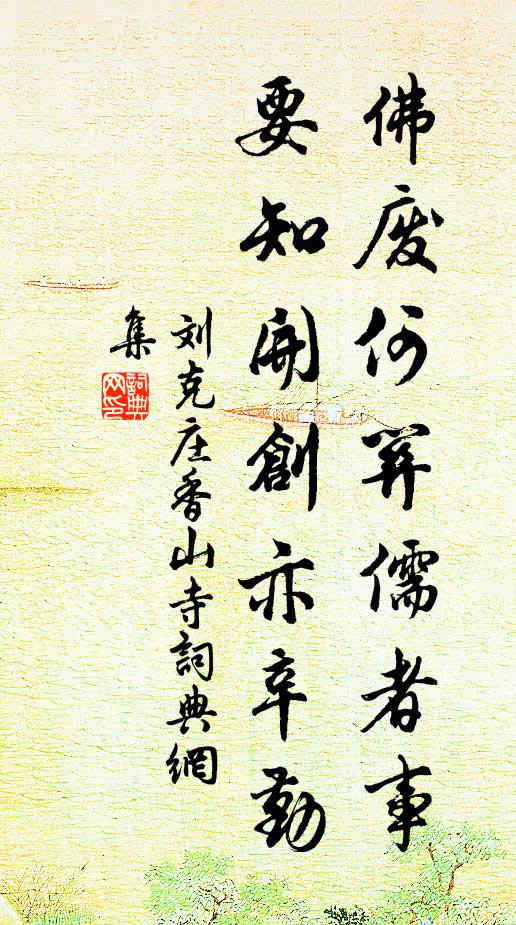 佛废何關儒者事
要知開創亦辛勤
刘克庄香山寺詞典網
集
詞典
网印